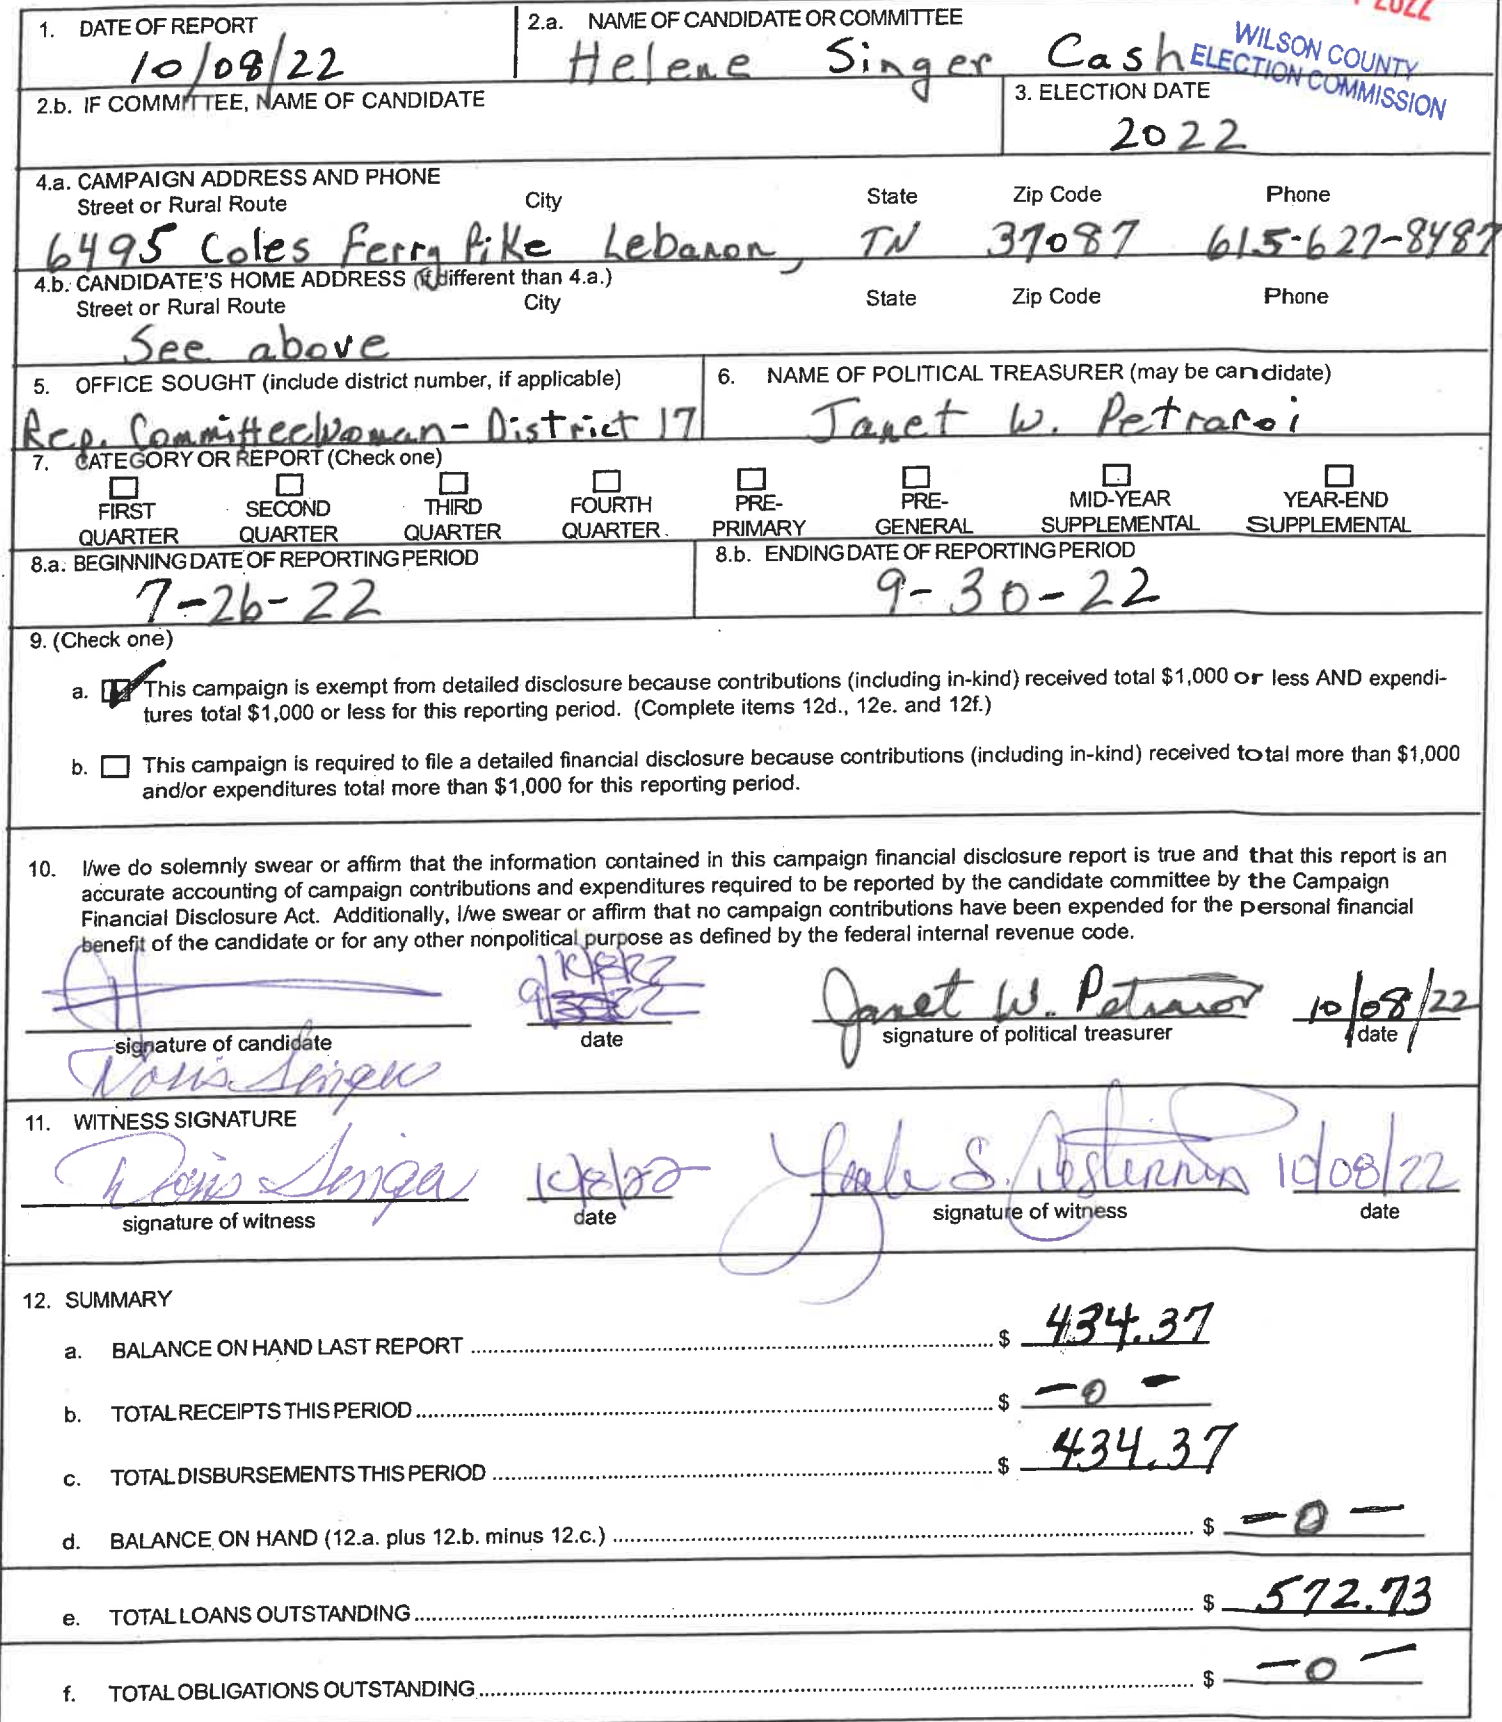 2022
WILSON COUNTY
ELECTION COMMISSION
1. DATE OF REPORT
10/08/22
2.a. NAME OF CANDIDATE OR COMMITTEE
Helene Singer Cash
2.b. IF COMMITTEE, NAME OF CANDIDATE
3. ELECTION DATE
2022
4.a. CAMPAIGN ADDRESS AND PHONE
Street or Rural Route City State Zip Code Phone
6495 Coles Ferry Pike Lebanon, TN 37087 615-627-8487
4.b. CANDIDATE'S HOME ADDRESS (if different than 4.a.)
Street or Rural Route City State Zip Code Phone
See above
5. OFFICE SOUGHT (include district number, if applicable)
Rep. CommitteeWoman - District 17
6. NAME OF POLITICAL TREASURER (may be candidate)
Janet W. Petraroi
7. CATEGORY OR REPORT (Check one)
FIRST QUARTER
SECOND QUARTER
THIRD QUARTER
FOURTH QUARTER
PRE-PRIMARY
PRE-GENERAL
MID-YEAR SUPPLEMENTAL
YEAR-END SUPPLEMENTAL
8.a. BEGINNING DATE OF REPORTING PERIOD
7-26-22
8.b. ENDING DATE OF REPORTING PERIOD
9-30-22
9. (Check one)
a. This campaign is exempt from detailed disclosure because contributions (including in-kind) received total $1,000 or less AND expendi-
tures total $1,000 or less for this reporting period. (Complete items 12d., 12e. and 12f.)
b. This campaign is required to file a detailed financial disclosure because contributions (including in-kind) received total more than $1,000
and/or expenditures total more than $1,000 for this reporting period.
10. I/we do solemnly swear or affirm that the information contained in this campaign financial disclosure report is true and that this report is an
accurate accounting of campaign contributions and expenditures required to be reported by the candidate committee by the Campaign
Financial Disclosure Act. Additionally, I/we swear or affirm that no campaign contributions have been expended for the personal financial
benefit of the candidate or for any other nonpolitical purpose as defined by the federal internal revenue code.
10/8/22
Janet W. Petraroi 10/08/22
signature of candidate date signature of political treasurer date
Doris Singer
11. WITNESS SIGNATURE
Doris Singer 10/8/22 S. 10/08/22
signature of witness date signature of witness date
12. SUMMARY
a. BALANCE ON HAND LAST REPORT $ 434.37
b. TOTAL RECEIPTS THIS PERIOD $ -0-
c. TOTAL DISBURSEMENTS THIS PERIOD $ 434.37
d. BALANCE ON HAND (12.a. plus 12.b. minus 12.c.) $ -0-
e. TOTAL LOANS OUTSTANDING $ 572.73
f. TOTAL OBLIGATIONS OUTSTANDING $ -0-